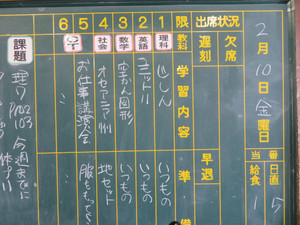 2月10日金曜日
当番 日直
給食
1 5
出席状況
欠席
遅刻
早退
限 教科 学習内容 準備
1 理科 じしん いつもの
2 英語 ユニット11 いつもの
3 数学 空かん図形 いつもの
4 社会 オセアニア州 地セット
5 お仕事講演会
6
課題
P102
103
今週までに